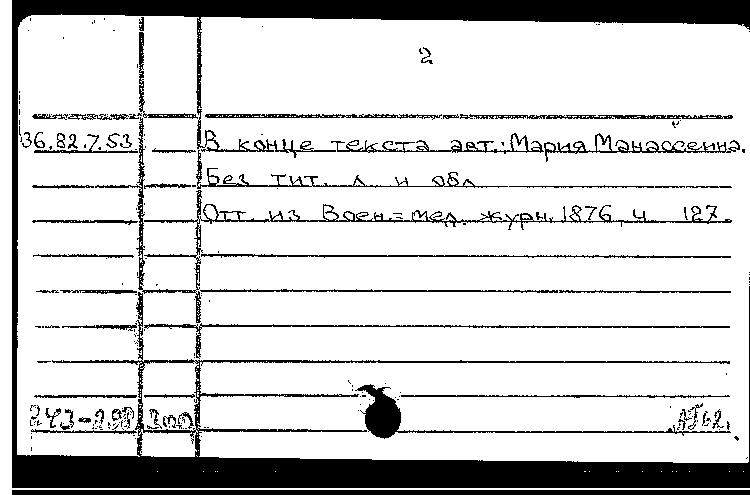 2
36.82.7.53 В конце текста авт.: Мария Манассеина.
Без тит. л. и обл
Отт. из Воен.=мед. журн. 1876, ч. 127.
243-298